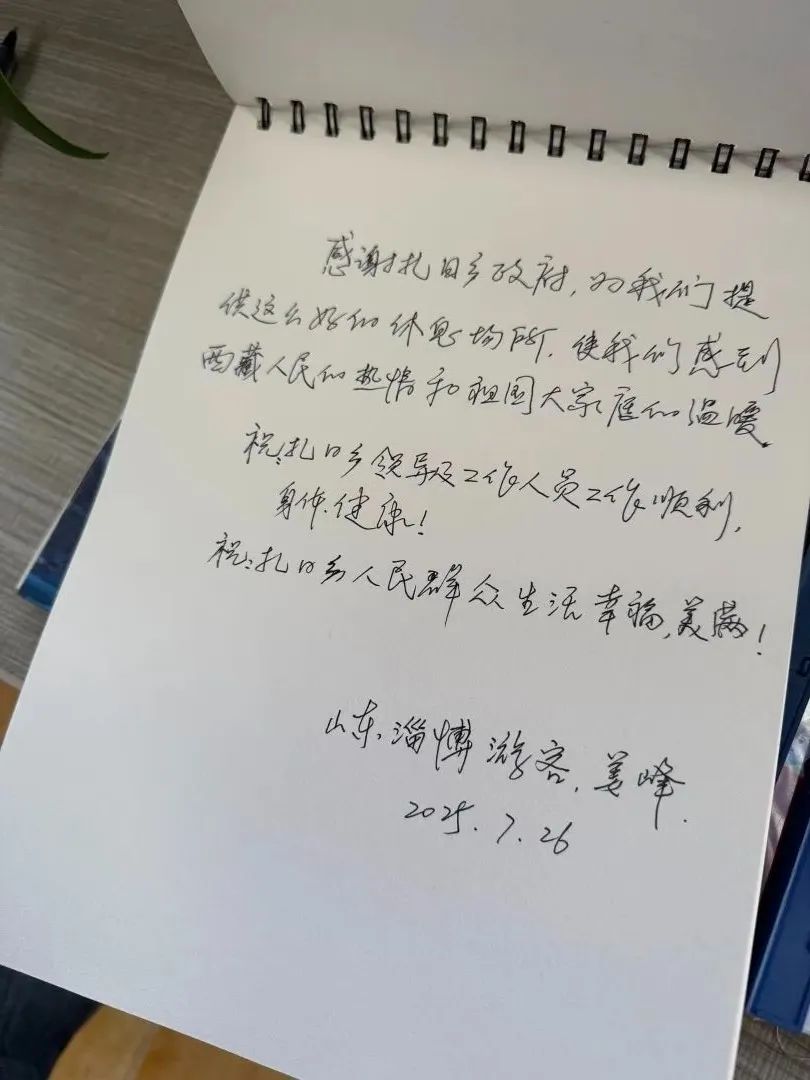 感谢扎日乡政府,为我们提
供这么好的休息场所,使我们感到
西藏人民的热情和祖国大家庭的温暖。
祝:扎日乡领导及工作人员工作顺利,
身体健康!
祝:扎日乡人民群众生活幸福,美满!
山东淄博游客,姜峰.
2025.7.26